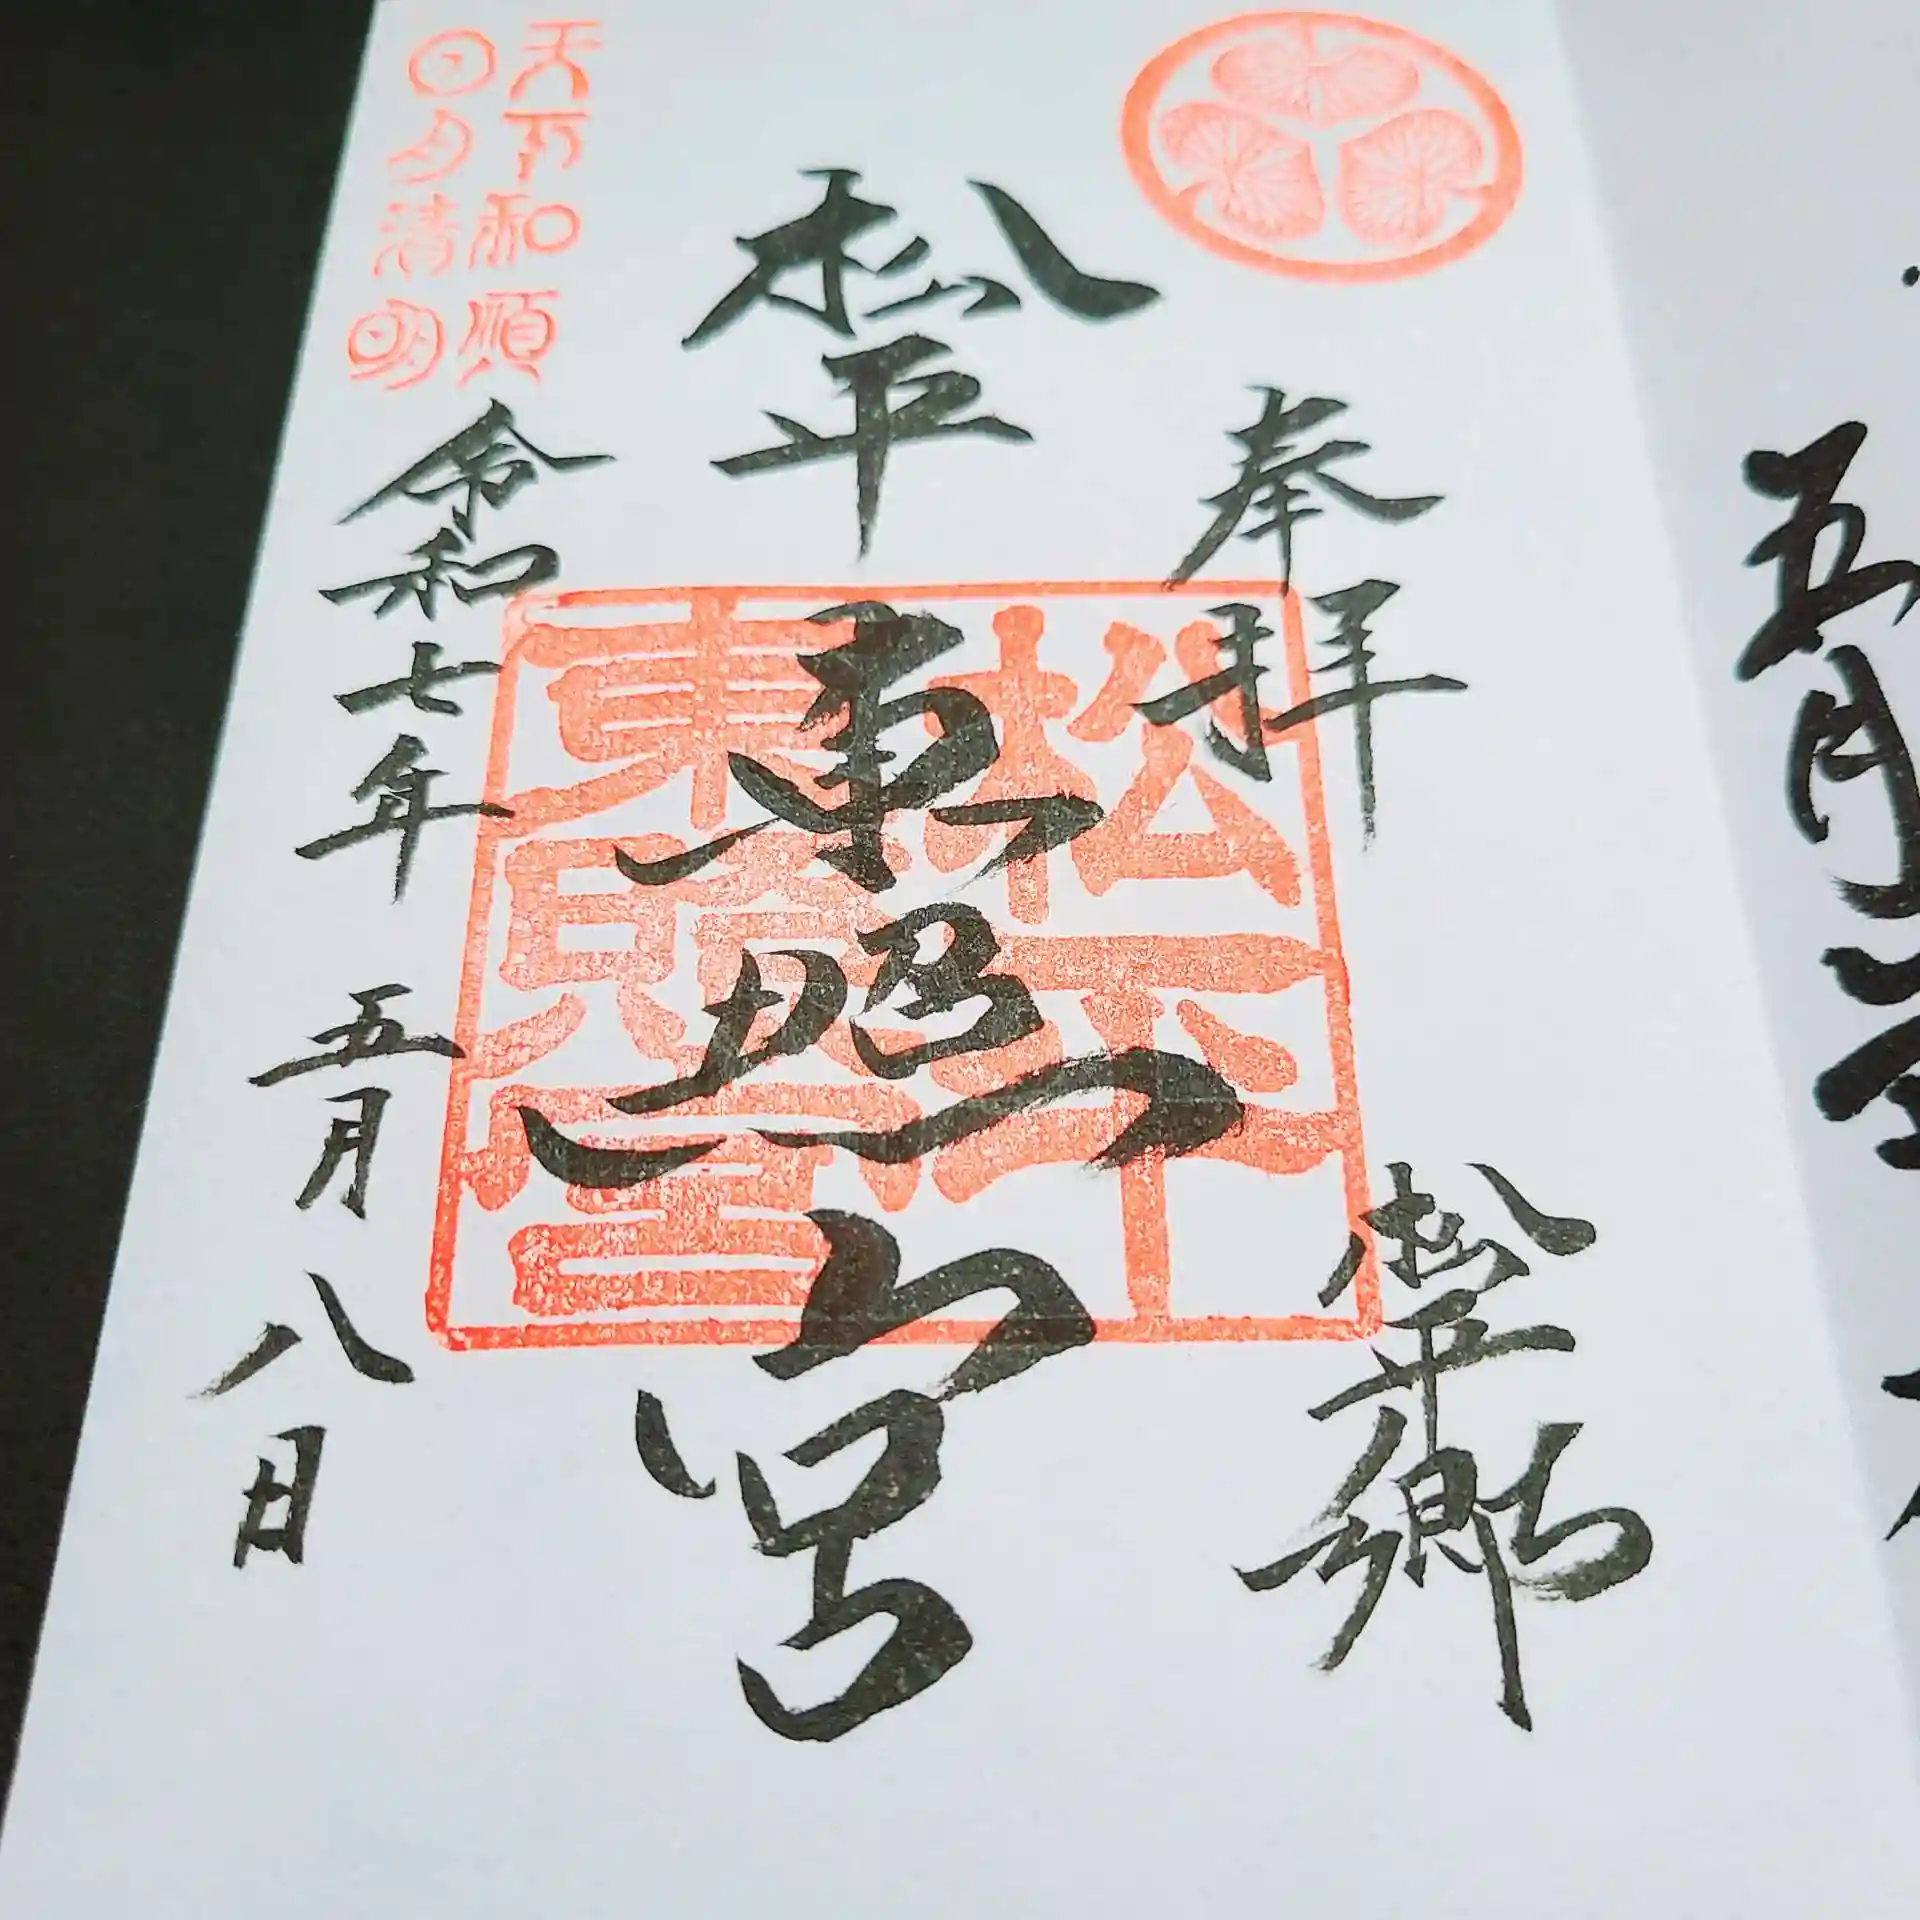 奉拝
松平郷
松平東照宮
松平
東照宮
天下和順
日月清明
令和七年 五月八日
五月